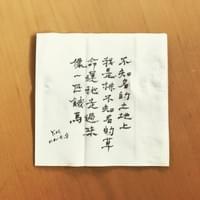 不知名的土地上
我是株不知名的草
命運牠走過來
像一匹餓馬